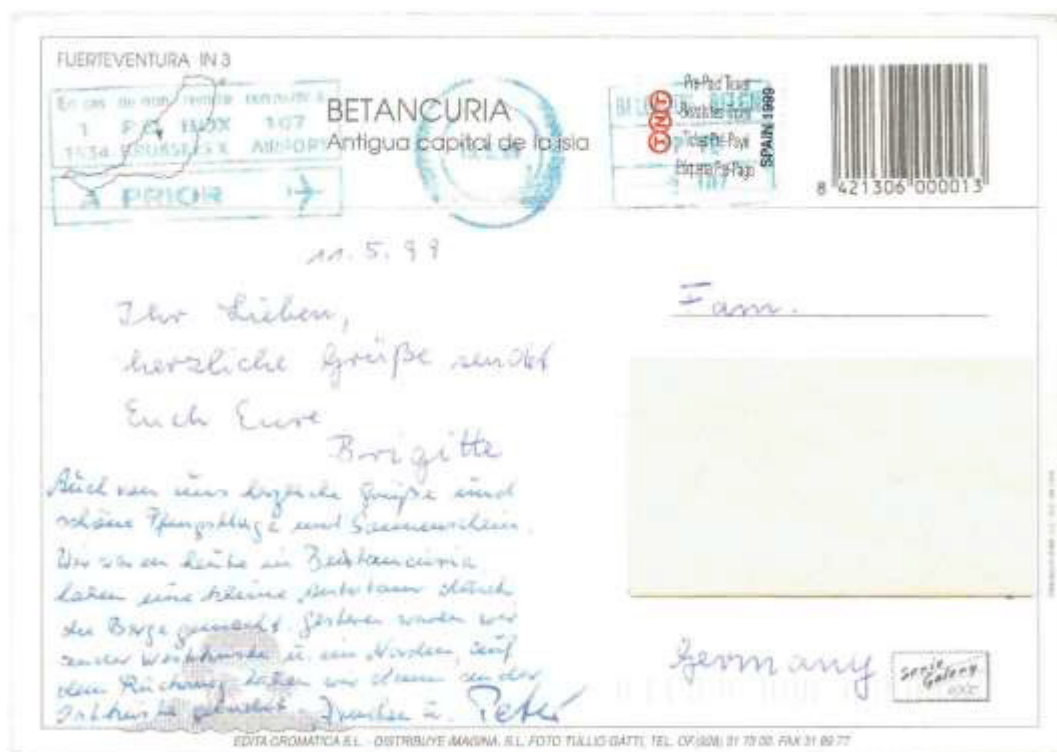 FUERTEVENTURA IN 3
En cas de non remise
1 P.O. BOX 107
1934 BRUSSELS X AIRPORT
A PRIOR
BETANCURIA
Antigua capital de la isla
TNT
SPAIN 1999
8 421306 000013
11.5.99
Ihr Lieben,
herzliche Grüße sendet
Euch Eure
Brigitte
Auch von uns herzliche Grüße und
schöne Pfingsttage und Sonnenschein.
Wir waren heute in Bethancuria
haben eine kleine Autotour durch
die Berge gemacht. Gestern waren wir
an der Westküste u. im Norden, auf
dem Rückweg haben wir dann an der
Ostküste u. Peter
Fam.
Germany
Serie Galery
EDITA CROMATICA S.L. - DISTRIBUYE IMAGINA, S.L. FOTO TULLIO GATTI, TEL. OF (928)